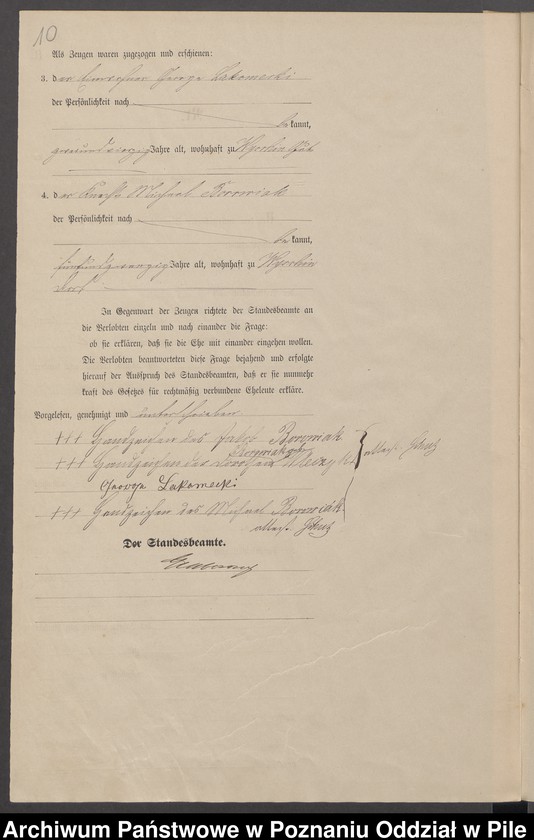 10
Als Zeugen waren zugezogen und erschienen:
3. der Einwohner George Lakomecki
der Persönlichkeit nach
bekannt,
Jahre alt, wohnhaft zu
4. der Knecht Michael Borowiak
der Persönlichkeit nach
bekannt,
fünfundzwanzig Jahre alt, wohnhaft zu
Dorf
In Gegenwart der Zeugen richtete der Standesbeamte an
die Verlobten einzeln und nach einander die Frage:
ob sie erklären, daß sie die Ehe mit einander eingehen wollen.
Die Verlobten beantworteten diese Frage bejahend und erfolgte
hierauf der Ausspruch des Standesbeamten, daß er sie nunmehr
kraft des Gesetzes für rechtmäßig verbundene Eheleute erkläre.
Vorgelesen, genehmigt und unterschrieben
+++ Handzeichen des Jakob Borowiak
+++ Handzeichen der
George Lakomecki
+++ Handzeichen des Michael Borowiak
attest.
Der Standesbeamte.
Archiwum Państwowe w Poznaniu Oddział w Pile